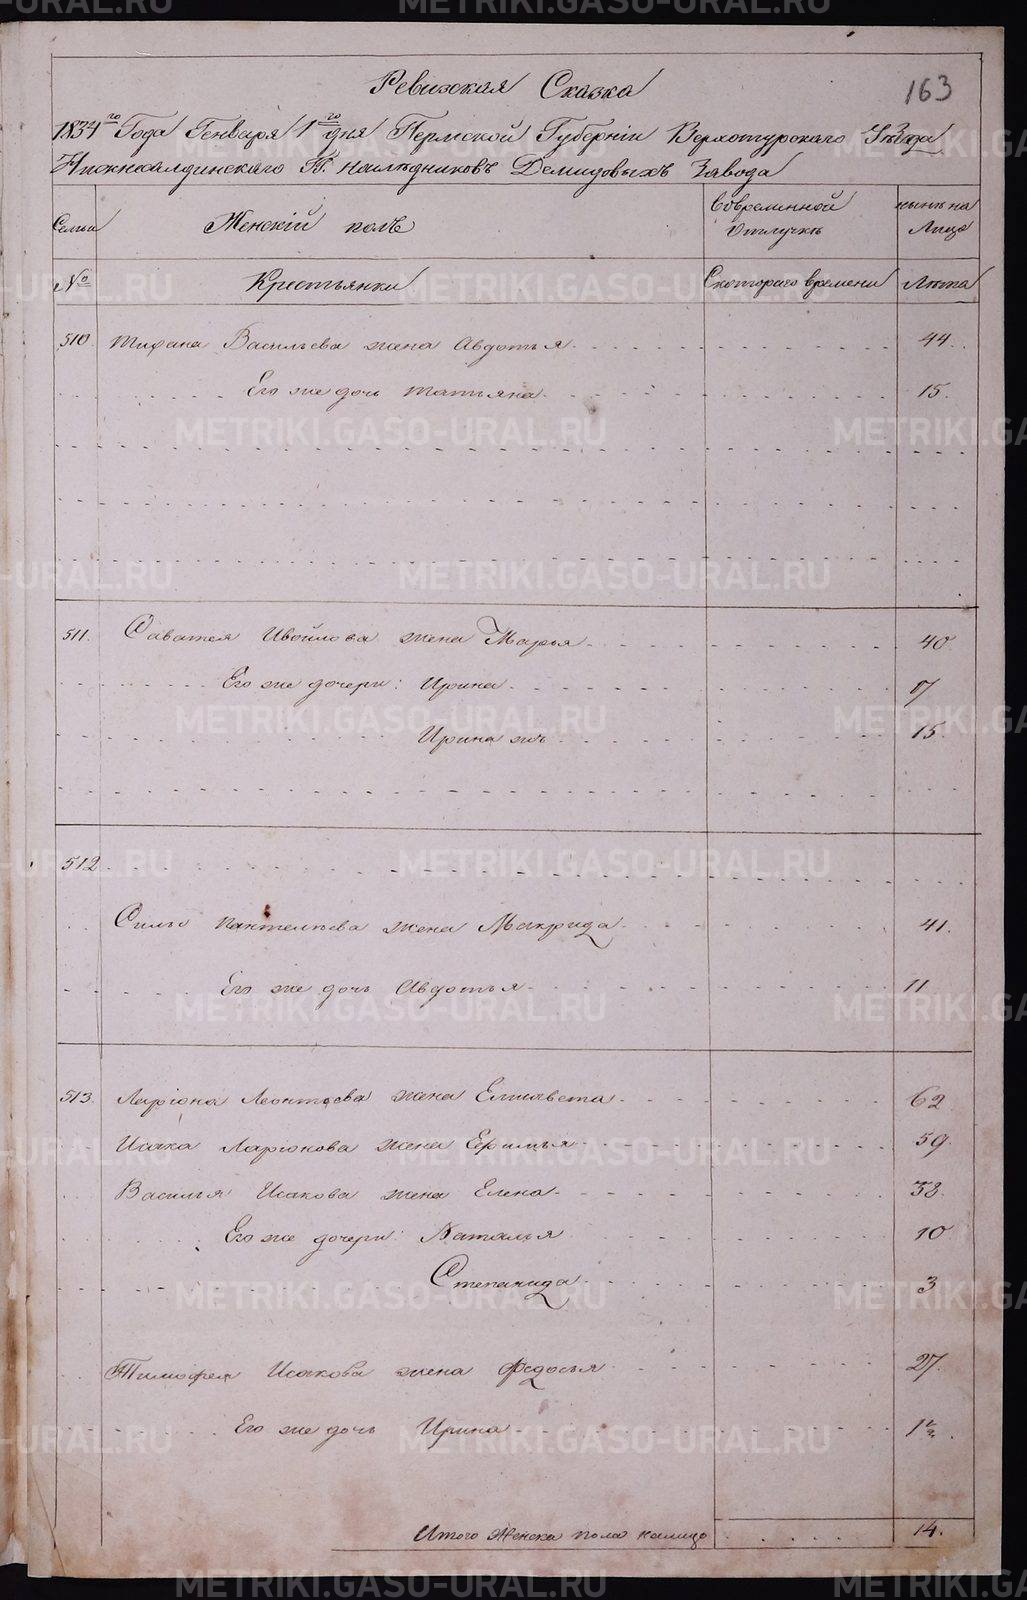 Ревизская Сказка
163
1834го Года Генваря 1го дня Пермской Губернiи Верхотурскаго Уѣзда
Нижнесалдинскаго Г. наслѣдниковъ Демидовыхъ Завода
Семьи Женскiй полъ Вовременной отлучкѣ нынѣ на Лицо
№ Крестьянки Скотораго времени Лѣта
510. Тифана Васильева жена Авдотья 44.
Его же дочь Татьяна 15.
511. Саватея Ивойлова жена Марья 40
Его же дочери: Ирина
Ирина жъ 15.
512
Силы Пантелѣева жена Макрида 41.
Его же дочь Авдотья 11
513. Ларiона Леонтьева жена Елисавета 62
Исака Ларiонова жена Ефимья 59.
Василья Исакова жена Елена 38.
Его же дочери: Наталья 10
Степанида 3
Тимофея Исакова жена Федосья 27.
Его же дочь Ирина
Итого Женска пола налицо 14.
METRIKI.GASO-URAL.RU